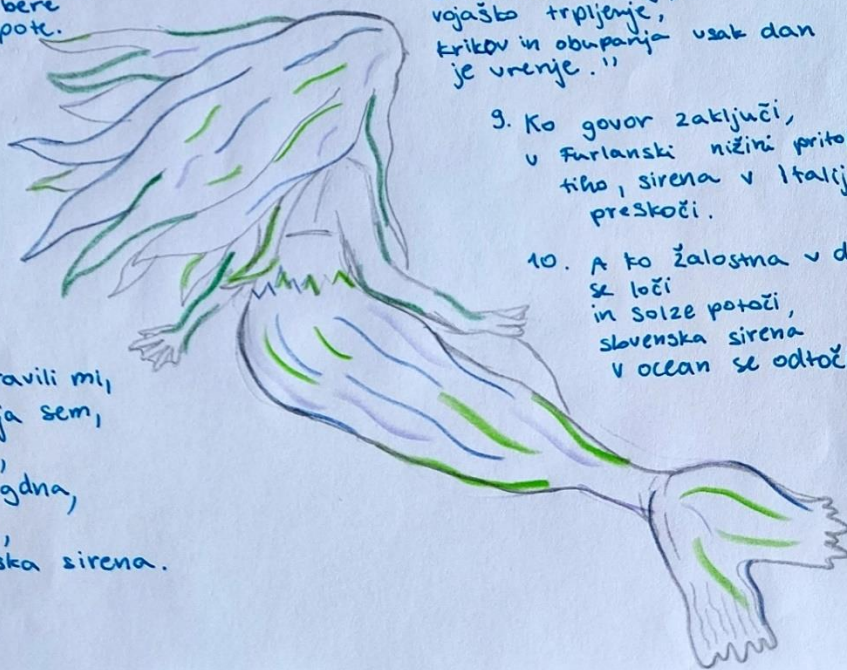 bere
pote.
vojaško trpljenje,
krikov in obupanja vsak dan
je vrenje."
9. Ko govor zaključi,
v Furlanski nižini prito
tiho, sirena v Italij
preskoči.
10. A ko žalostna v d
se loči
in solze potoči,
slovenska sirena
v ocean se odtoč
ravili mi,
ja sem,
,
gdna,
,
ska sirena.